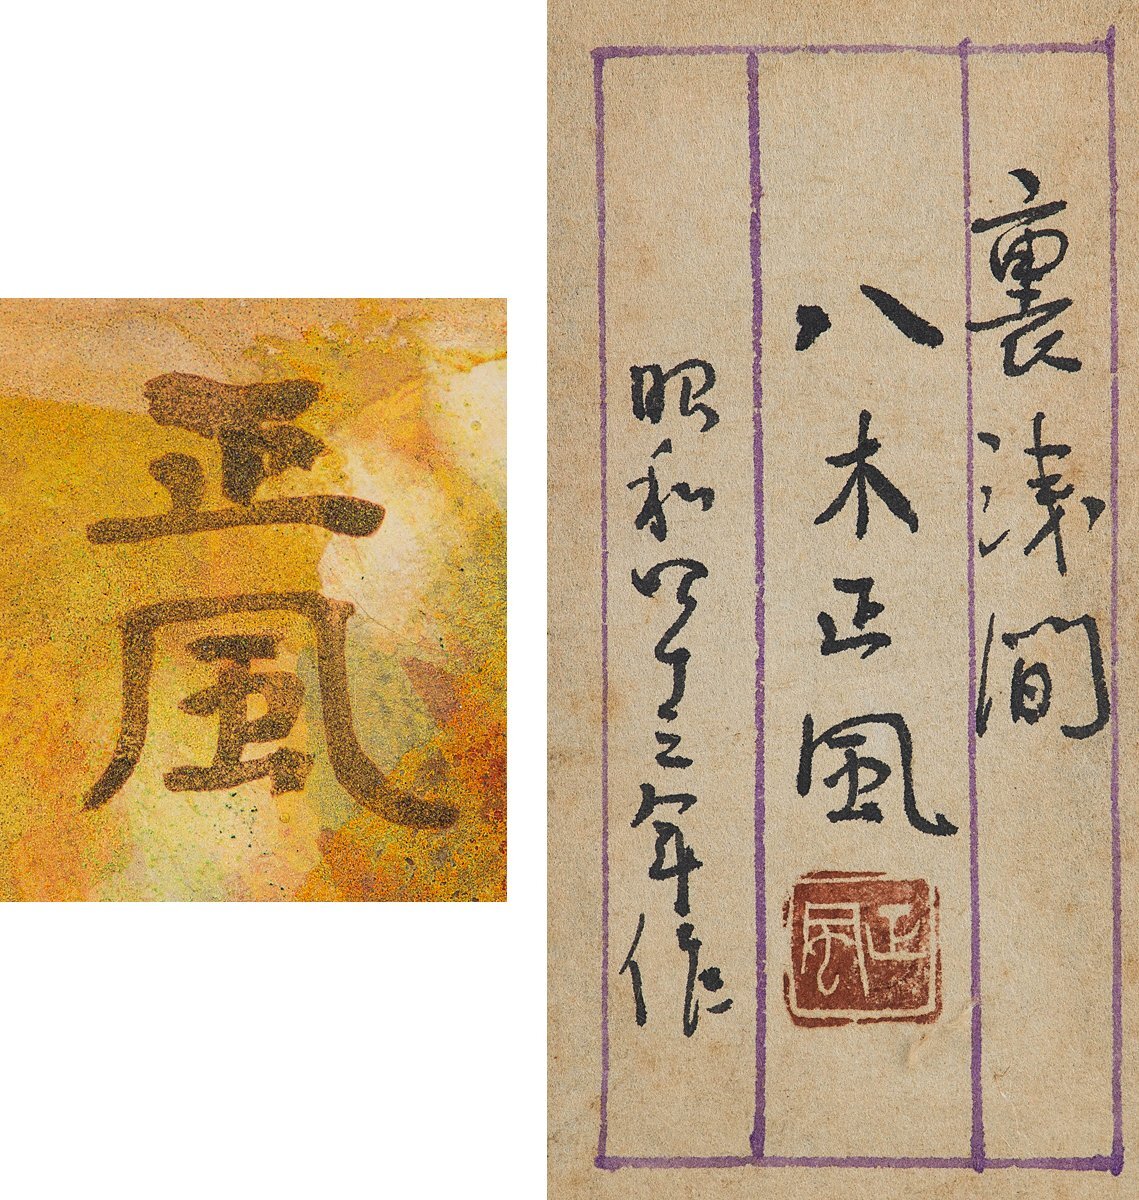 正風
裏浅間
八木正風
正風
昭和四十二年作